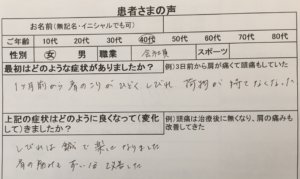 患者さまの声
お名前(無記名・イニシャルでも可)
ご年齢 10代 20代 30代 40代 50代 60代 70代 80代
性別 女 男 職業 会社員 スポーツ
最初はどのような症状がありましたか? 例)3日前から肩が痛くて頭痛もしていた
1ヶ月前から肩のこりがひどく、しびれ 荷物が持てなくなった
上記の症状はどのように良くなって(変化 例)頭痛は治療後に無くなり、肩の痛みも
して)きましたか? 改善してきた
しびれは鍼で楽になりました
肩の痛みもずいぶん改善した